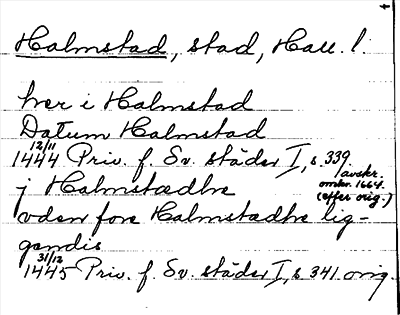 Halmstad, stad, Hall. l.
her i Halmstad
Datum Halmstad
12/11
1444 Priv. f. Sv. städer I, s. 339.
avskr.
omkr. 1664.
(efter orig.)
j Halmstædhe
vden fore Halmstædhe lig-
gendis
31/12
1445 Priv. f. Sv. städer I, s 341 orig.